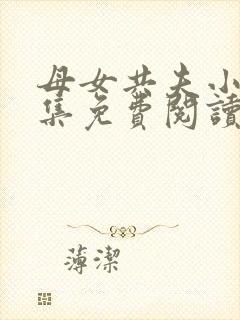 母女共夫小
集免費閱讀
薄潔